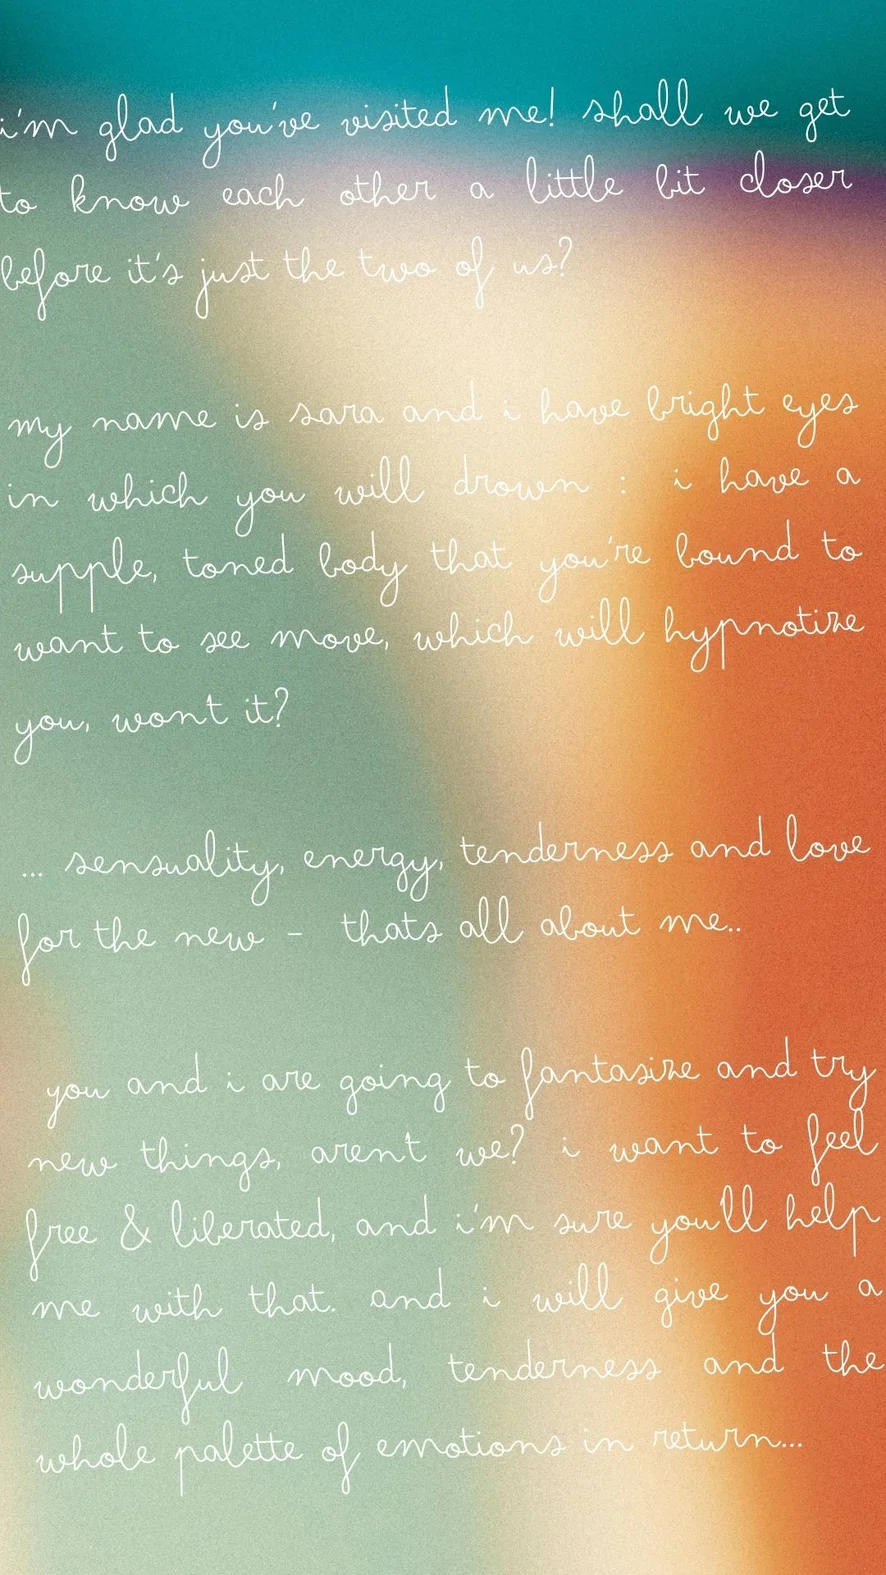 i'm glad you've visited me! shall we get
to know each other a little bit closer
before it's just the two of us?
my name is sara and i have bright eyes
in which you will drown : i have a
supple, toned body that you're bound to
want to see move, which will hypnotize
you, wont it?
... sensuality, energy, tenderness and love
for the new - thats all about me..
you and i are going to fantasize and try
new things, aren't we? i want to feel
free & liberated, and i'm sure you'll help
me with that. and i will give you a
wonderful mood, tenderness and the
whole palette of emotions in return...